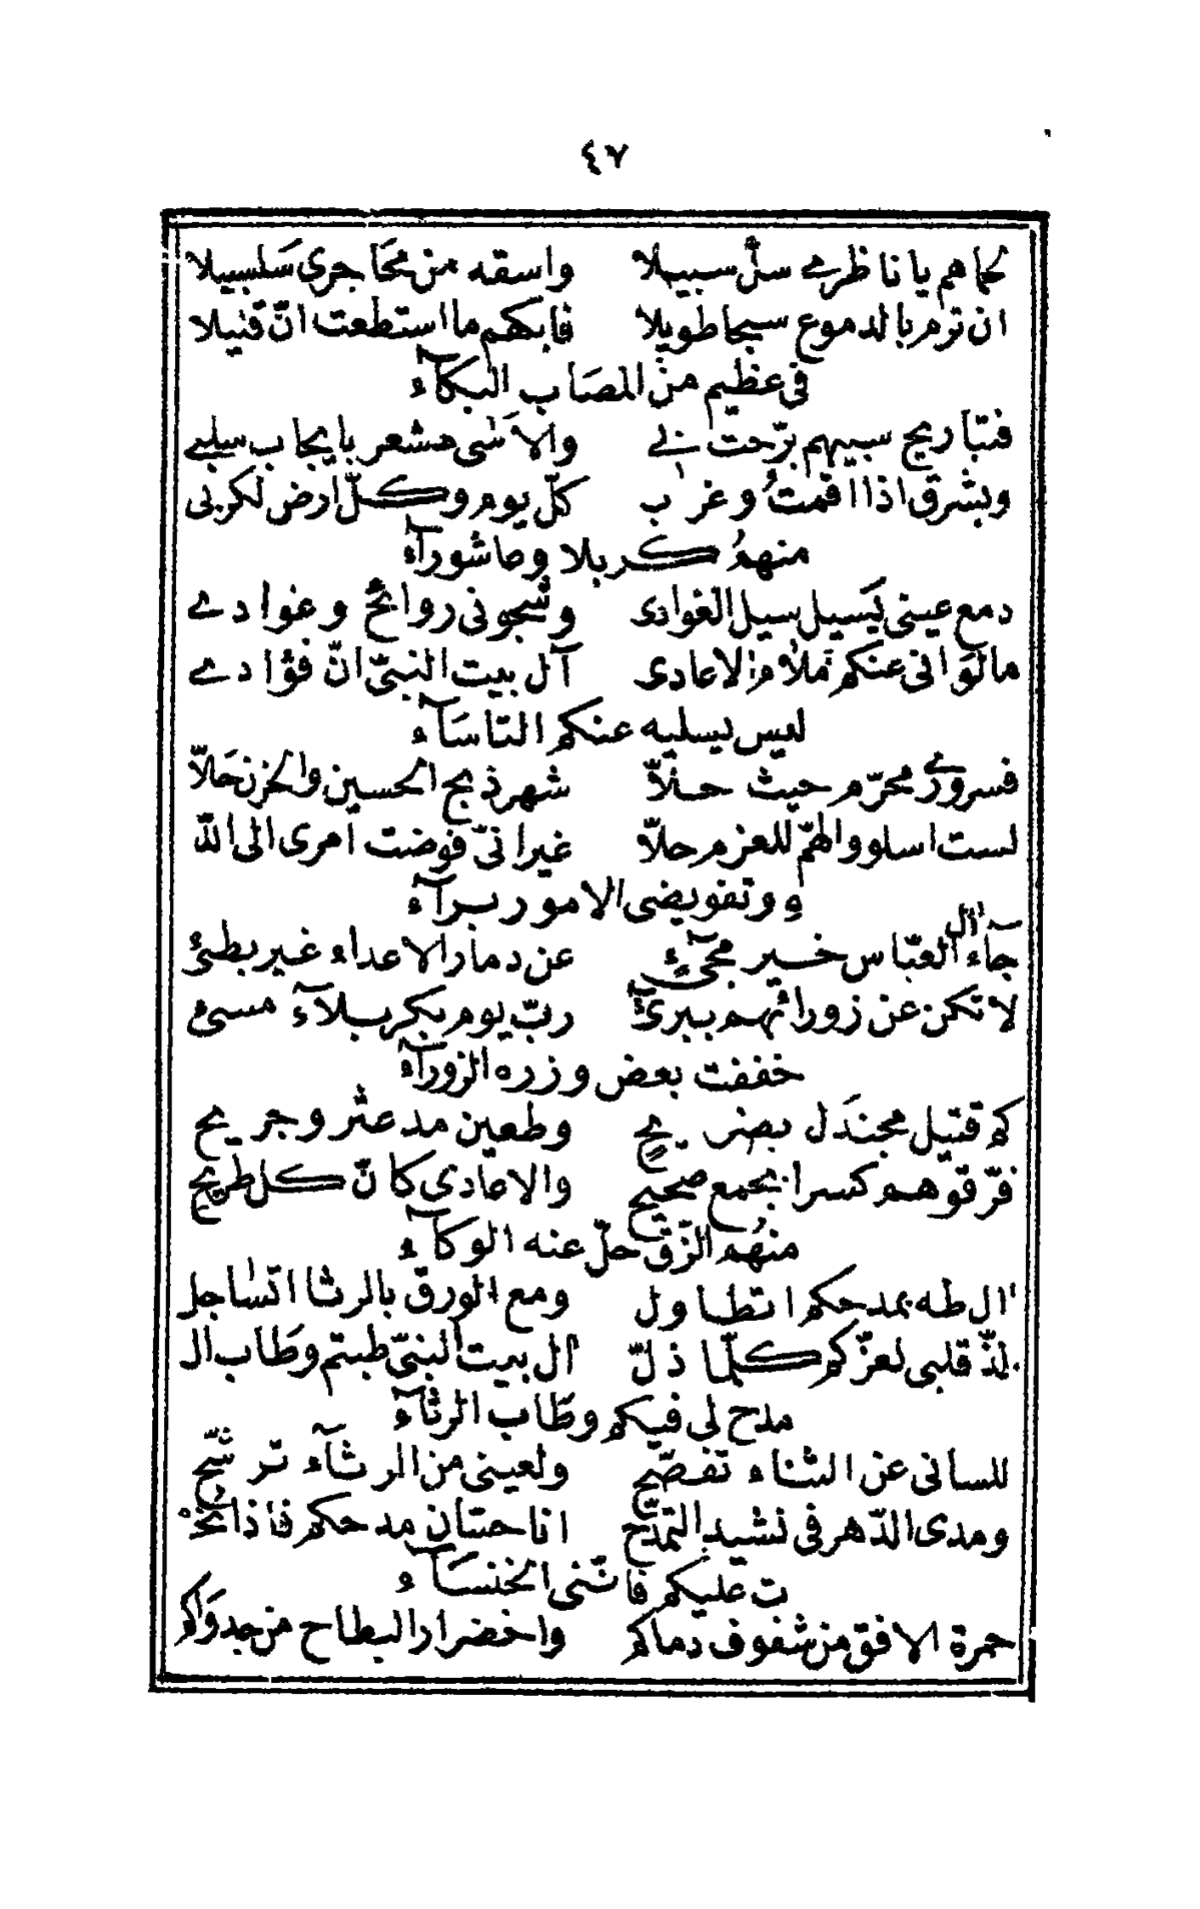 ٤٧
لحماهم يا ناظري سل سبيلا واسقه من محاجري سَلسبيلا
ان ترم بالدموع سبحا طويلا فابكهم ما استطعت انّ قليلا
فى عظيم من المصَاب البكآء
فتباريح سبيهم برّحت بي والاسٰى مشعر بايجاب سلبي
وبشرق اذا اقمتُ وغرب كلّ يوم وكلّ ارض لكربى
منهمُ كربلا وعاشورآء
دمع عينى يَسيل سيل الغوادى وشجونى روائحٌ وغوادي
مالوَانى عنكم مَلام الاعادى آل بيت النبىّ انّ فؤادي
ليس يسليه عنكم التاسَآء
فسروري محرّم حيث حلّا شهر ذبح الحسين والحزن حَلّا
لست اسلو والهمّ للعزم حلّا غير انىّ فوضت امرى الى اللّه
ه وتفويضى الامور برآء
جآء آل العبّاس خير مجىٓءٍ عن دمار الاعداء غير بطئ
لا تكن عن زورائهم ببرئٍ ربّ يوم بكربلآء مسئ
خففت بعض وزره الزورآء
كم قتيل مجندَل بضريحٍ وطعين مدعثر وجريح
فرّقوهم كسرا بجمع صحيح والاعادى كانّ كل طريح
منهُم الزّقّ حلّ عنه الوكآء
ال طه بمدحكم اتطاول ومع الورق بالرثا اتسٰاجل
لذّ قلبى لعزّكم كلّما ذلّ ال بيت النبىّ طبتم وطَاب ال
مدح لى فيكم وطَاب الرثآء
للسانى عن الثناء تفصّح ولعينى من الرثآء ترشّح
ومدى الدّهر فى نشيد التمدّح انا حسّان مدحكم فاذا نحْ
ت عليكم فانّنى الخنسَآء
حمرة الافق من شفوف دماكم واخضرار البطاح من جدوَاكم